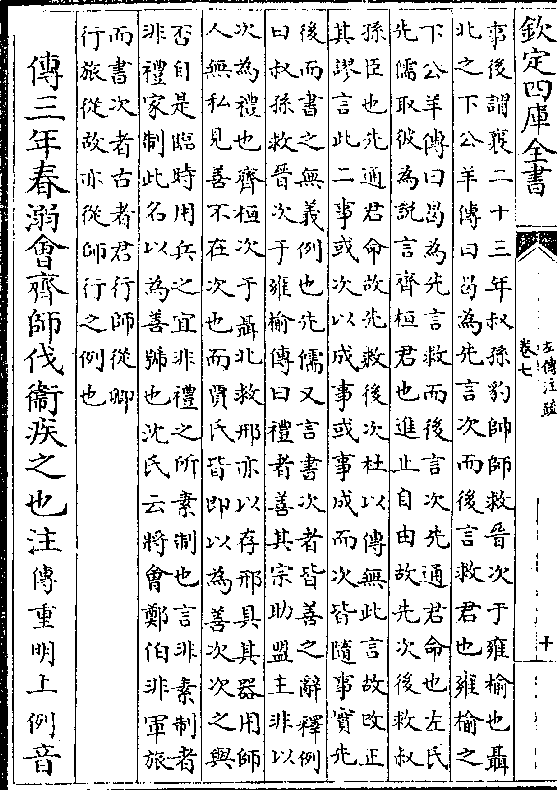 欽定四庫全書
左傳注疏
卷七
十
事後謂襄二十三年叔孫豹帥師救晉次于雍榆也聶
北之下公羊傳曰曷為先言次而後言救君也雍榆之
下公羊傳曰曷為先言救而後言次先通君命也左氏
先儒取彼為説言齊桓君也進止自由故先次後救叔
孫臣也先通君命故先救後次杜以傳無此言故改正
其謬言此二事或次以成事或事成而次皆隨事實先
後而書之無義例也先儒又言書次者皆善之辭釋例
曰叔孫救晉次于雍榆傳曰禮者善其宗助盟主非以
次為禮也齊桓次于聶北救邢亦以存邢具其器用師
人無私見善不在次也而賈氏皆即以為善次次之與
否自是臨時用兵之宜非禮之所素制也言非素制者
非禮家制此名以為善號也沈氏云將會鄭伯非軍旅
而書次者古者君行師從卿
行旅從故亦從師行之例也
傳三年春溺會齊師伐衞疾之也注傳重明上例音